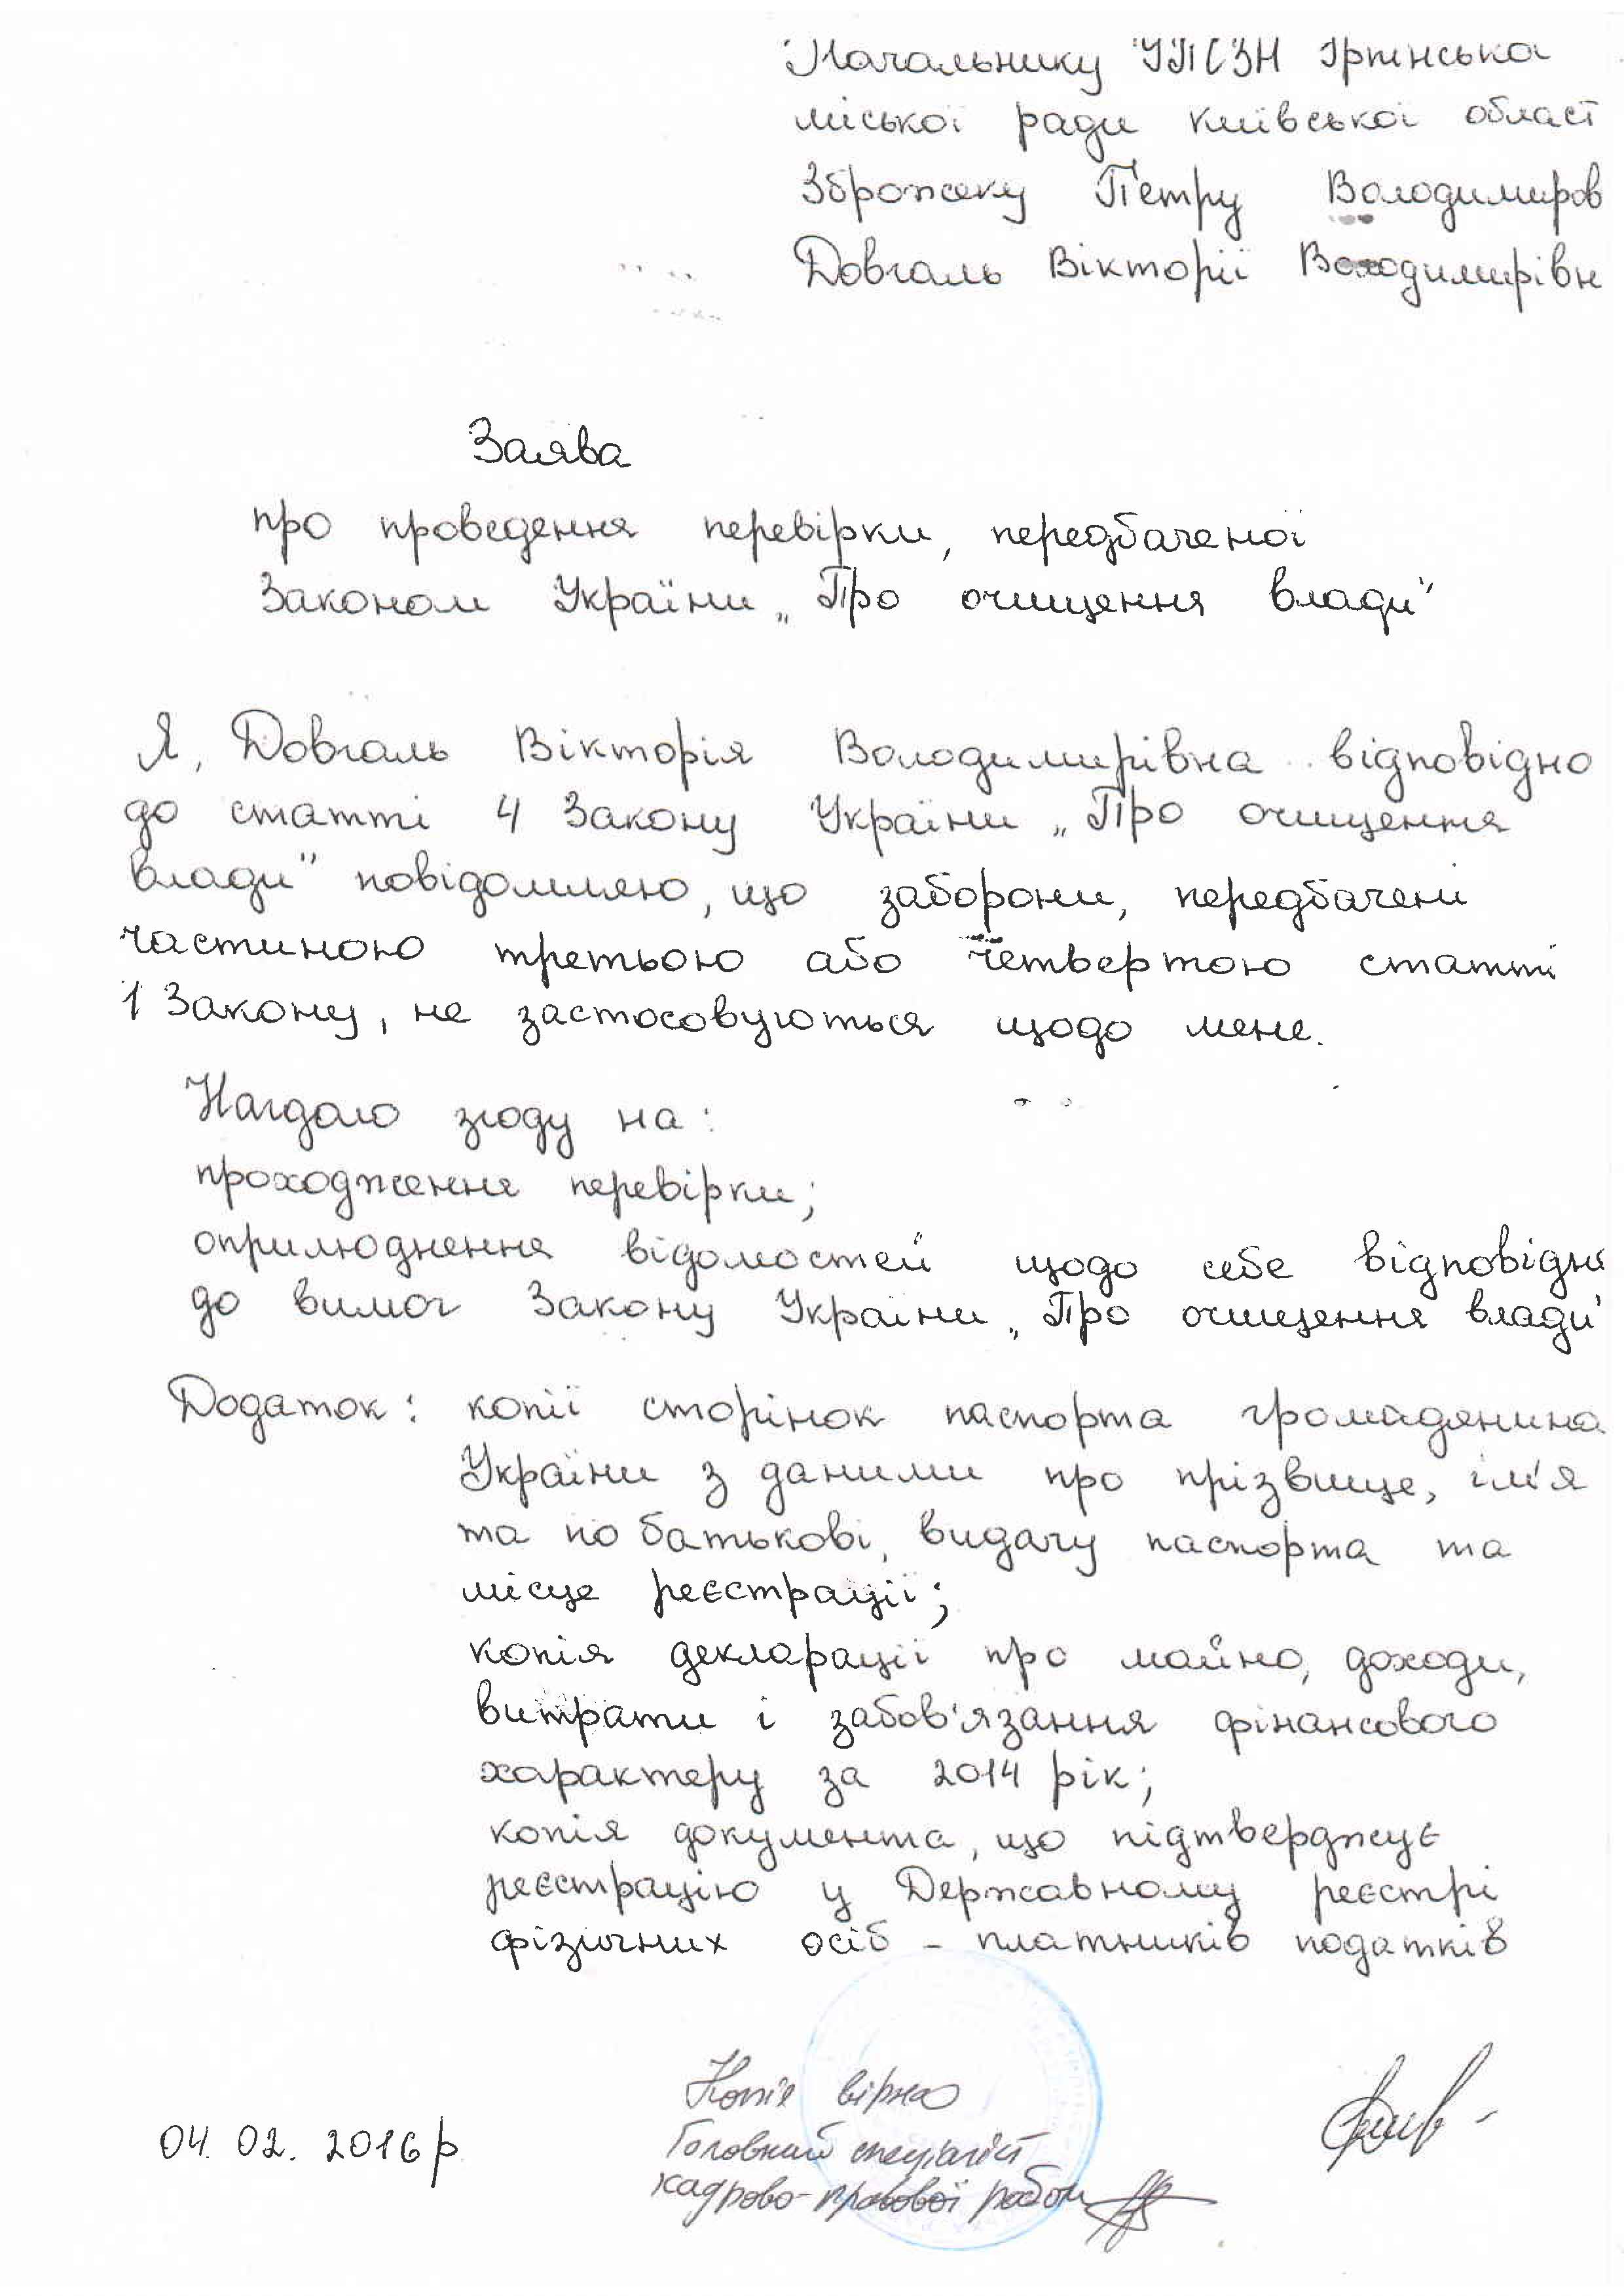 Начальнику УПСЗН Ірпінська
міської ради Київської област
Зброжеку Петру Володимиров
Довгаль Вікторії Володимирівн
Заява
про проведення перевірки, передбаченої
Законом України „Про очищення влади"
Я, Довгаль Вікторія Володимирівна відповідно
до статті 4 Закону України „Про очищення
влади" повідомляю, що заборони, передбачені
частиною третьою або четвертою статті
1 Закону, не застосовуються щодо мене.
Нагдаю згоду на:
проходження перевірки;
оприлюднення відомостей щодо себе відповідн
до вимог Закону України „Про очищення влади"
Додаток: копії сторінок паспорта громадянина
України з даними про прізвище, ім'я
та по батькові, видачу паспорта та
місце реєстрації;
копія декларації про майно, доходи,
витрати і забов'язання фінансового
характеру за 2014 рік;
копія документа, що підтверджує
реєстрацію у Державному реєстрі
фізичних осіб - платників податків
Копія вірна
04.02.2016р Головний спеціаліст
кадрово-правової роботи